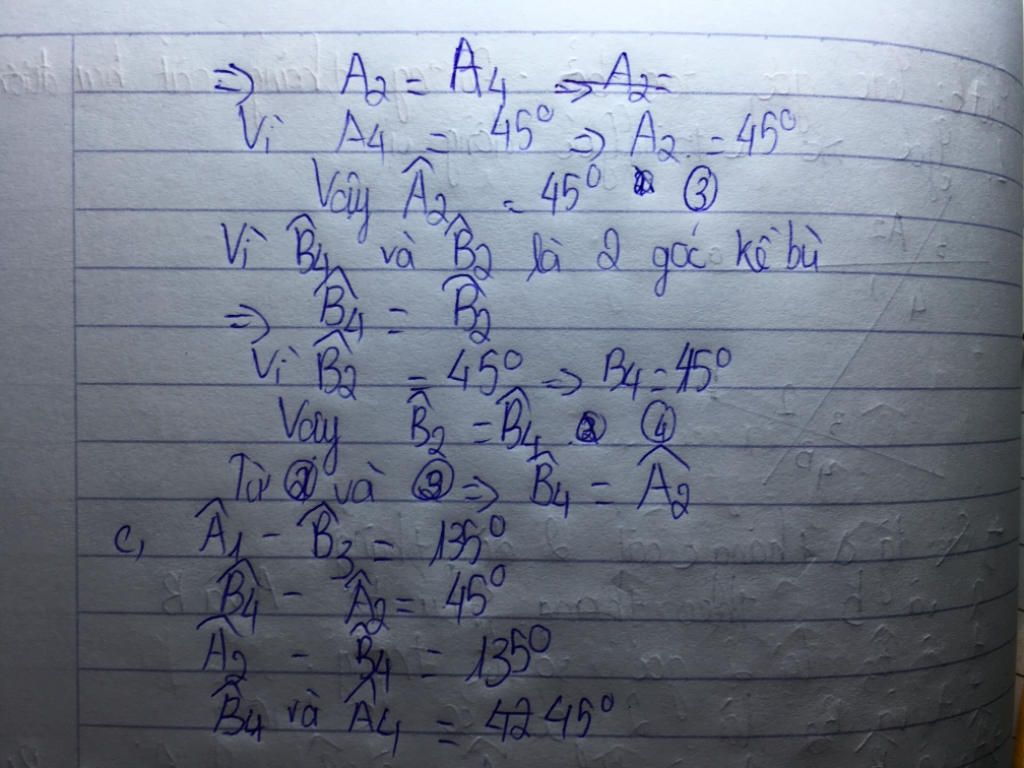 => A2 = A4 => A2 =
Vì A4 = 45° => A2 = 45°
Vây Â2 = 45° ③
Vì B̂4 và B̂2 là 2 góc kê bù
=> B̂4 = B̂2
Vì B̂2 = 45° => B4 = 45°
Vây B̂2 = B̂4 ④
Từ và => B̂4 = Â2
c, Â1 - B̂3 = 135°
B̂4 - Â2 = 45°
Â2 - B̂4 = 135°
B̂4 và Â4 = 42 45°